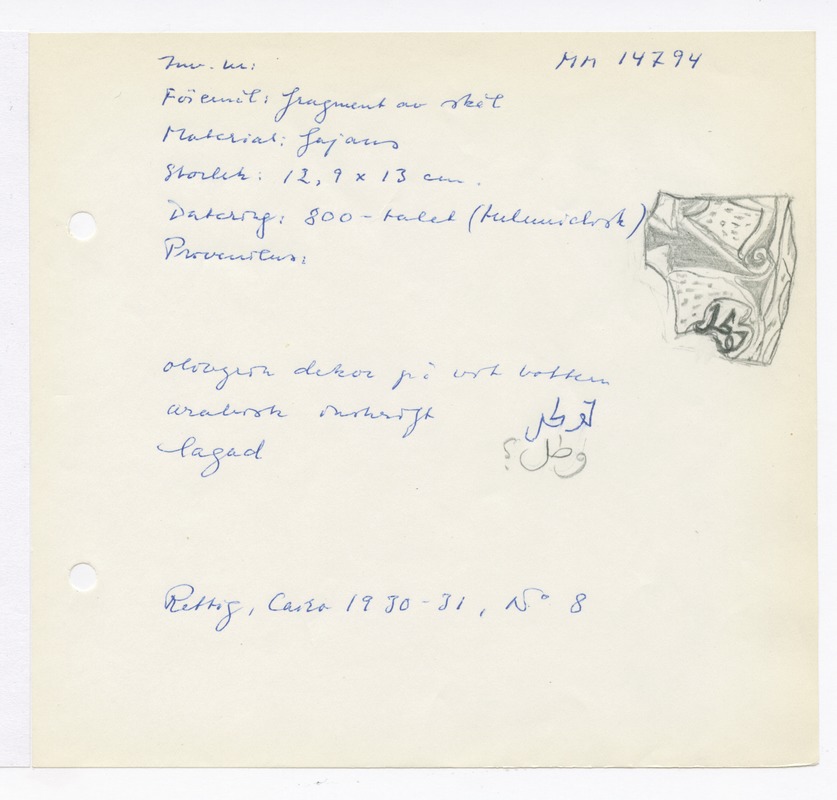 Inv. nr: MM 14794
Föremål: fragment av skål
Material: fajans
Storlek: 12,9 x 13 cm.
Datering: 800-talet (tulunidisk)
Proveniens:
olivgrön dekor på vit botten
arabisk inskrift
lagad
وطل؟
Rettig, Cairo 1930-31, No 8